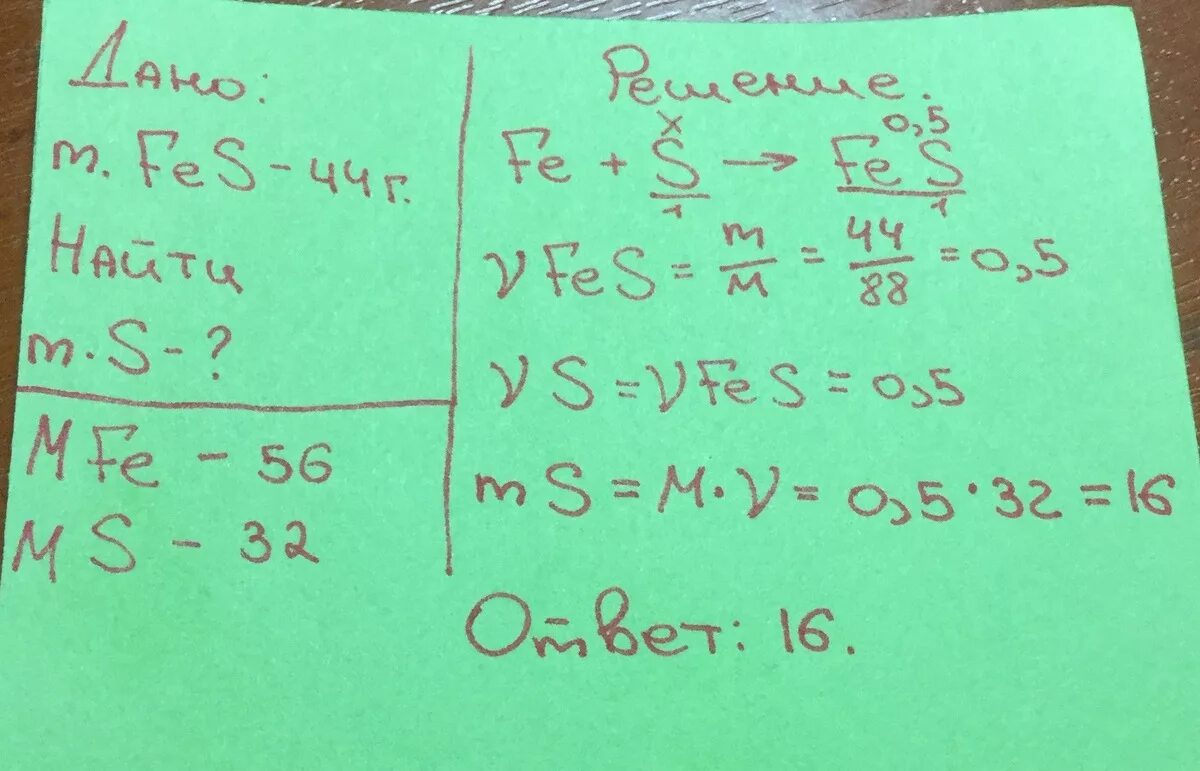 Дано:
m. FeS - 44 г.
Найти
m. S - ?
M Fe - 56
M S - 32
Решение.
x 0,5
Fe + S → FeS
1 1
ν FeS = m/M = 44/88 = 0,5
ν S = ν FeS = 0,5
m S = M · ν = 0,5 · 32 = 16
Ответ: 16.